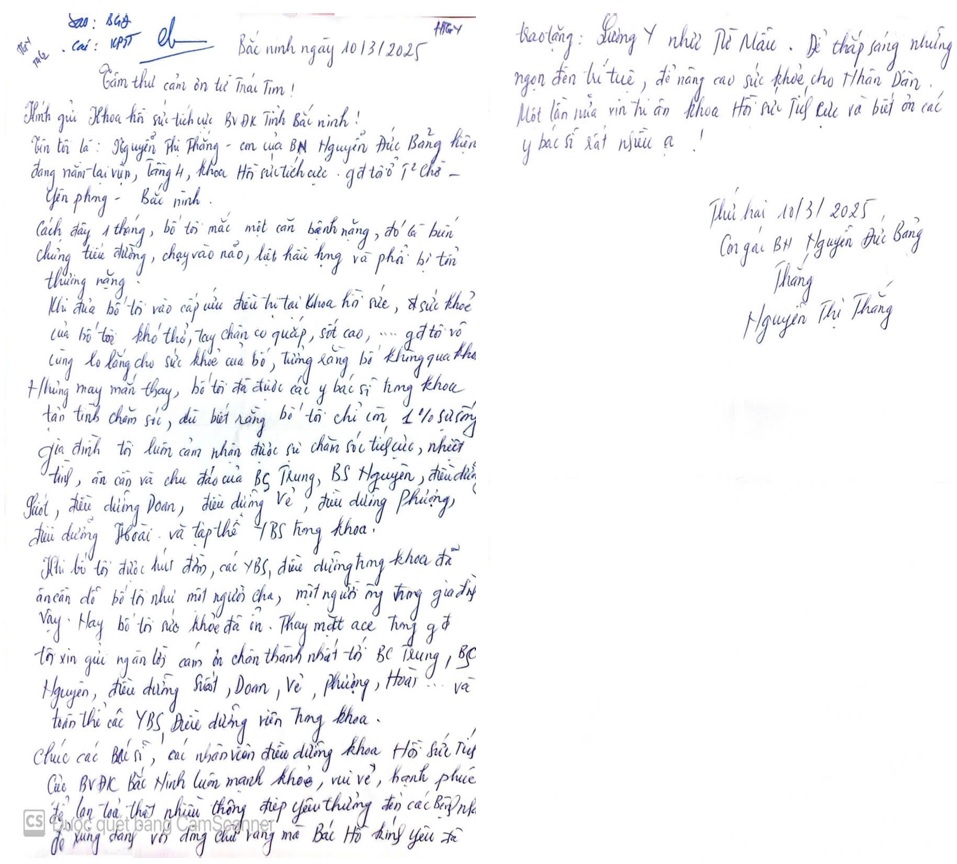 Sao: BGĐ
Các: KPST
Bắc ninh ngày 10/3/2025
Tâm thư cảm ơn từ Trái Tim!
Kính gửi Khoa hồi sức tích cực BVĐK Tỉnh Bắc ninh!
Tên tôi là: Nguyễn Thị Thắng - con của BN Nguyễn Đức Bảng hiện
đang nằm tại viện, Tầng 4, Khoa Hồi sức tích cực. gđ tôi ở Chờ -
Yên phong - Bắc ninh.
Cách đây 1 tháng, bố tôi mắc một căn bệnh nặng, đó là biến
chứng tiểu đường, chạy vào não, lật hầu họng và phổi bị tổn
thương nặng.
Khi đưa bố tôi vào cấp cứu điều trị tại Khoa hồi sức, sức khoẻ
của bố tôi khó thở, tay chân co quắp, sốt cao, .... gđ tôi vô
cùng lo lắng cho sức khoẻ của bố, tưởng rằng bố không qua
Nhưng may mắn thay, bố tôi đã được các y bác sĩ trong khoa
tận tình chăm sóc, dù biết rằng bố tôi chỉ còn 1% sự sống
gia đình tôi luôn cảm nhận được sự chăm sóc tích cực, nhiệt
tình, ân cần và chu đáo của BS Trung, BS Nguyên, điều dưỡng
Suốt, điều dưỡng Doan, điều dưỡng Vẻ, điều dưỡng Phượng,
điều dưỡng Hoài. và tập thể YBS trong khoa.
Khi bố tôi được hút đờm, các YBS, điều dưỡng trong khoa đã
ân cần dỗ bố tôi như một người cha, một người ông trong gia đình
vậy. Nay bố tôi sức khỏe đã ổn. Thay mặt ace trong gđ
tôi xin gửi ngàn lời cám ơn chân thành nhất tới BS Trung, BS
Nguyên, điều dưỡng Suốt, Doan, Vẻ, Phượng, Hoài ... và
toàn thể các YBS, Điều dưỡng viên trong khoa.
Chúc các Bác sĩ, các nhân viên điều dưỡng khoa Hồi Sức Tích
Cực BVĐK Bắc Ninh luôn mạnh khoẻ, vui vẻ, hạnh phúc
để lan toả thật nhiều thông điệp yêu thương đến các Bệnh
để xứng đáng với dòng chữ vàng mà Bác Hồ kính yêu đã
CS Được quét bằng CamScanner
trao tặng: Lương Y như Từ Mẫu. Để thắp sáng những
ngọn đèn trí tuệ, để nâng cao sức khỏe cho Nhân Dân.
Một lần nữa xin tri ân khoa Hồi sức Tích cực và biết ơn các
y bác sĩ rất nhiều ạ!
Thứ hai 10/3/2025
Con gái BN Nguyễn Đức Bảng
Thắng
Nguyễn Thị Thắng